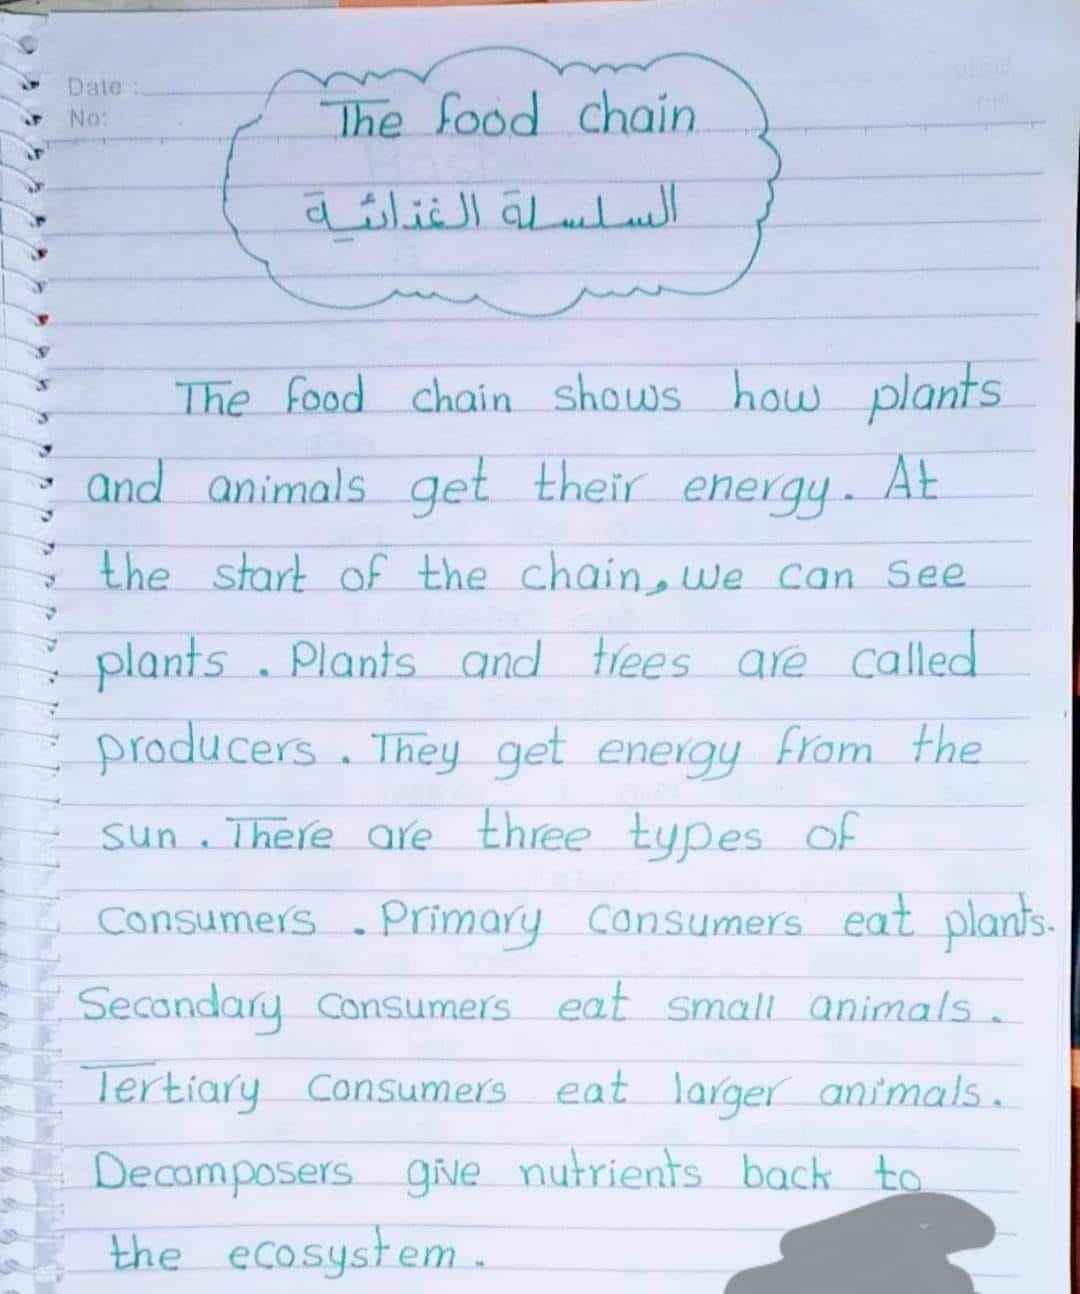 Date :
No:
The food chain
السلسلة الغذائية
The food chain shows how plants
and animals get their energy. At
the start of the chain, we can see
plants. Plants and trees are called
producers. They get energy from the
sun. There are three types of
consumers. Primary consumers eat plants.
Secondary consumers eat small animals.
Tertiary consumers eat larger animals.
Decomposers give nutrients back to
the ecosystem.